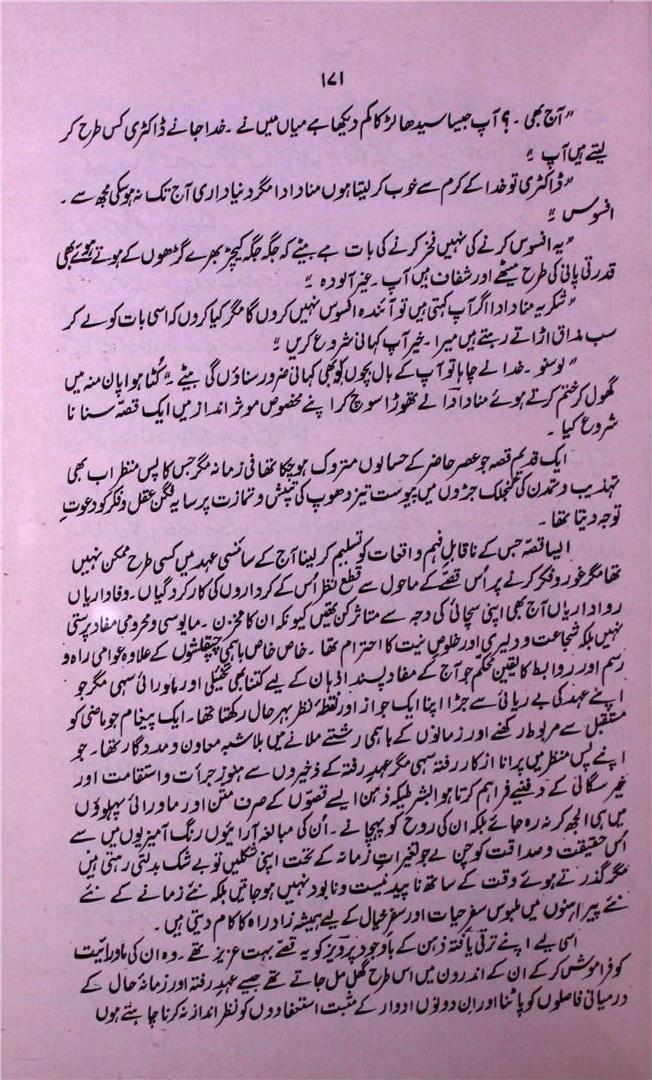 ۱۷۱
"آج بھی ۔ ؟ آپ جیسا سیدھا لڑکا کم دیکھا ہے میاں میں نے ۔ خدا جانے ڈاکٹری کس طرح کر
لیتے ہیں آپ "
"ڈاکٹری تو خدا کے کرم سے خوب کر لیتا ہوں منا دادا مگر دنیا داری آج تک نہ ہو سکی مجھ سے ۔
افسوس "
"یہ افسوس کرنے کی نہیں فخر کرنے کی بات ہے بیٹے کہ جگہ جگہ کیچڑ بھرے گڑھوں کے ہوتے ہوئے بھی
قدرتی پانی کی طرح میٹھے اور شفاف ہیں آپ ۔ غیر آلودہ "
"شکریہ منا دادا اگر آپ کہتی ہیں تو آئندہ افسوس نہیں کروں گا مگر کیا کروں کہ اسی بات کو لے کر
سب مذاق اڑاتے رہتے ہیں میرا ۔ خیر آپ کہانی شروع کریں "
"لو سنو ۔ خدا نے چاہا تو آپ کے بال بچوں کو بھی کہانی ضرور سناؤں گی بیٹے " کُٹا ہوا پان منہ میں
گھول کر ختم کرتے ہوئے منا دادا نے تھوڑا سوچ کر اپنے مخصوص موثر انداز میں ایک قصّہ سنانا
شروع کیا ۔
ایک قدیم قصہ جو عصر حاضر کے حسابوں متروک ہو چکا تھا فی زمانہ مگر جس کا پس منظر اب بھی
تہذیب و تمدن کی گنجلک جڑوں میں پیوست تیز دھوپ کی تپش و تمازت پر سایہ فگن عقل و فکر کو دعوتِ
توجہ دیتا تھا ۔
ایسا قصّہ جس کے ناقابلِ فہم واقعات کو تسلیم کر لینا آج کے سائنسی عہد میں کسی طرح ممکن نہیں
تھا مگر غور و فکر کرنے پر اُس قصّے کے ماحول سے قطع نظر اُس کے کرداروں کی کارکردگیاں ۔ وفاداریاں
رواداریاں آج بھی اپنی سچائی کی وجہ سے متاثر کن تھیں کیونکہ ان کا مخزن ۔ مایوسی و محرومی مفاد پرستی
نہیں بلکہ شجاعت و دلیری اور خلوصِ نیت کا احترام تھا ۔ خاص خاص باہمی چپقلشوں کے علاوہ عوامی راہ و
رسم اور روابط کا یقینِ محکم جو آج کے مفاد پسند اذہان کے لیے کتنا بھی تخیلی اور ماورائی سہی مگر جو
اپنے عہد کی بے ریائی سے جڑا اپنا ایک جواز اور نقطۂ نظر بہرحال رکھتا تھا ۔ ایک پیغام جو ماضی کو
مستقبل سے مربوط رکھنے اور زمانوں کے باہمی رشتے ملانے میں بلاشبہ معاون و مددگار تھا ۔ جو
اپنے پس منظر میں پرانا از کار رفتہ سہی مگر عہدِ رفتہ کے ذخیروں سے ہنوز جرأت و استقامت اور
خیر سگالی کے دفینے فراہم کرتا ہو ابشرطیکہ ذہن ایسے قصّوں کے صرف متن اور ماورائی پہلوؤں
میں ہی الجھ کر نہ رہ جائے بلکہ ان کی روح کو پہچانے ۔ اُن کی مبالغہ آرائیوں رنگ آمیزیوں میں سے
اُس حقیقت و صداقت کو چن لے جو تغیراتِ زمانہ کے تحت اپنی شکلیں تو بے شک بدلتی رہتی ہیں
مگر گذرتے ہوئے وقت کے ساتھ ناپید نیست و نابود نہیں ہو جاتیں بلکہ نئے زمانے کے نئے
نئے پیراہنوں میں ملبوس سفرِ حیات اور سفرِ خیال کے لیے ہمیشہ زادِ راہ کا کام دیتی ہیں ۔
اسی لیے اپنے ترقی یافتہ ذہن کے باوجود پرویز کو یہ قصے بہت عزیز تھے ۔ وہ ان کی ماورائیت
کو فراموش کر کے ان کے اندرون میں اس طرح گھل مل جاتے تھے جیسے عہدِ رفتہ اور زمانہ حال کے
درمیانی فاصلوں کو پاٹنا اور ان دونوں ادوار کے مثبت استعفادوں کو نظر انداز نہ کرنا چاہتے ہوں